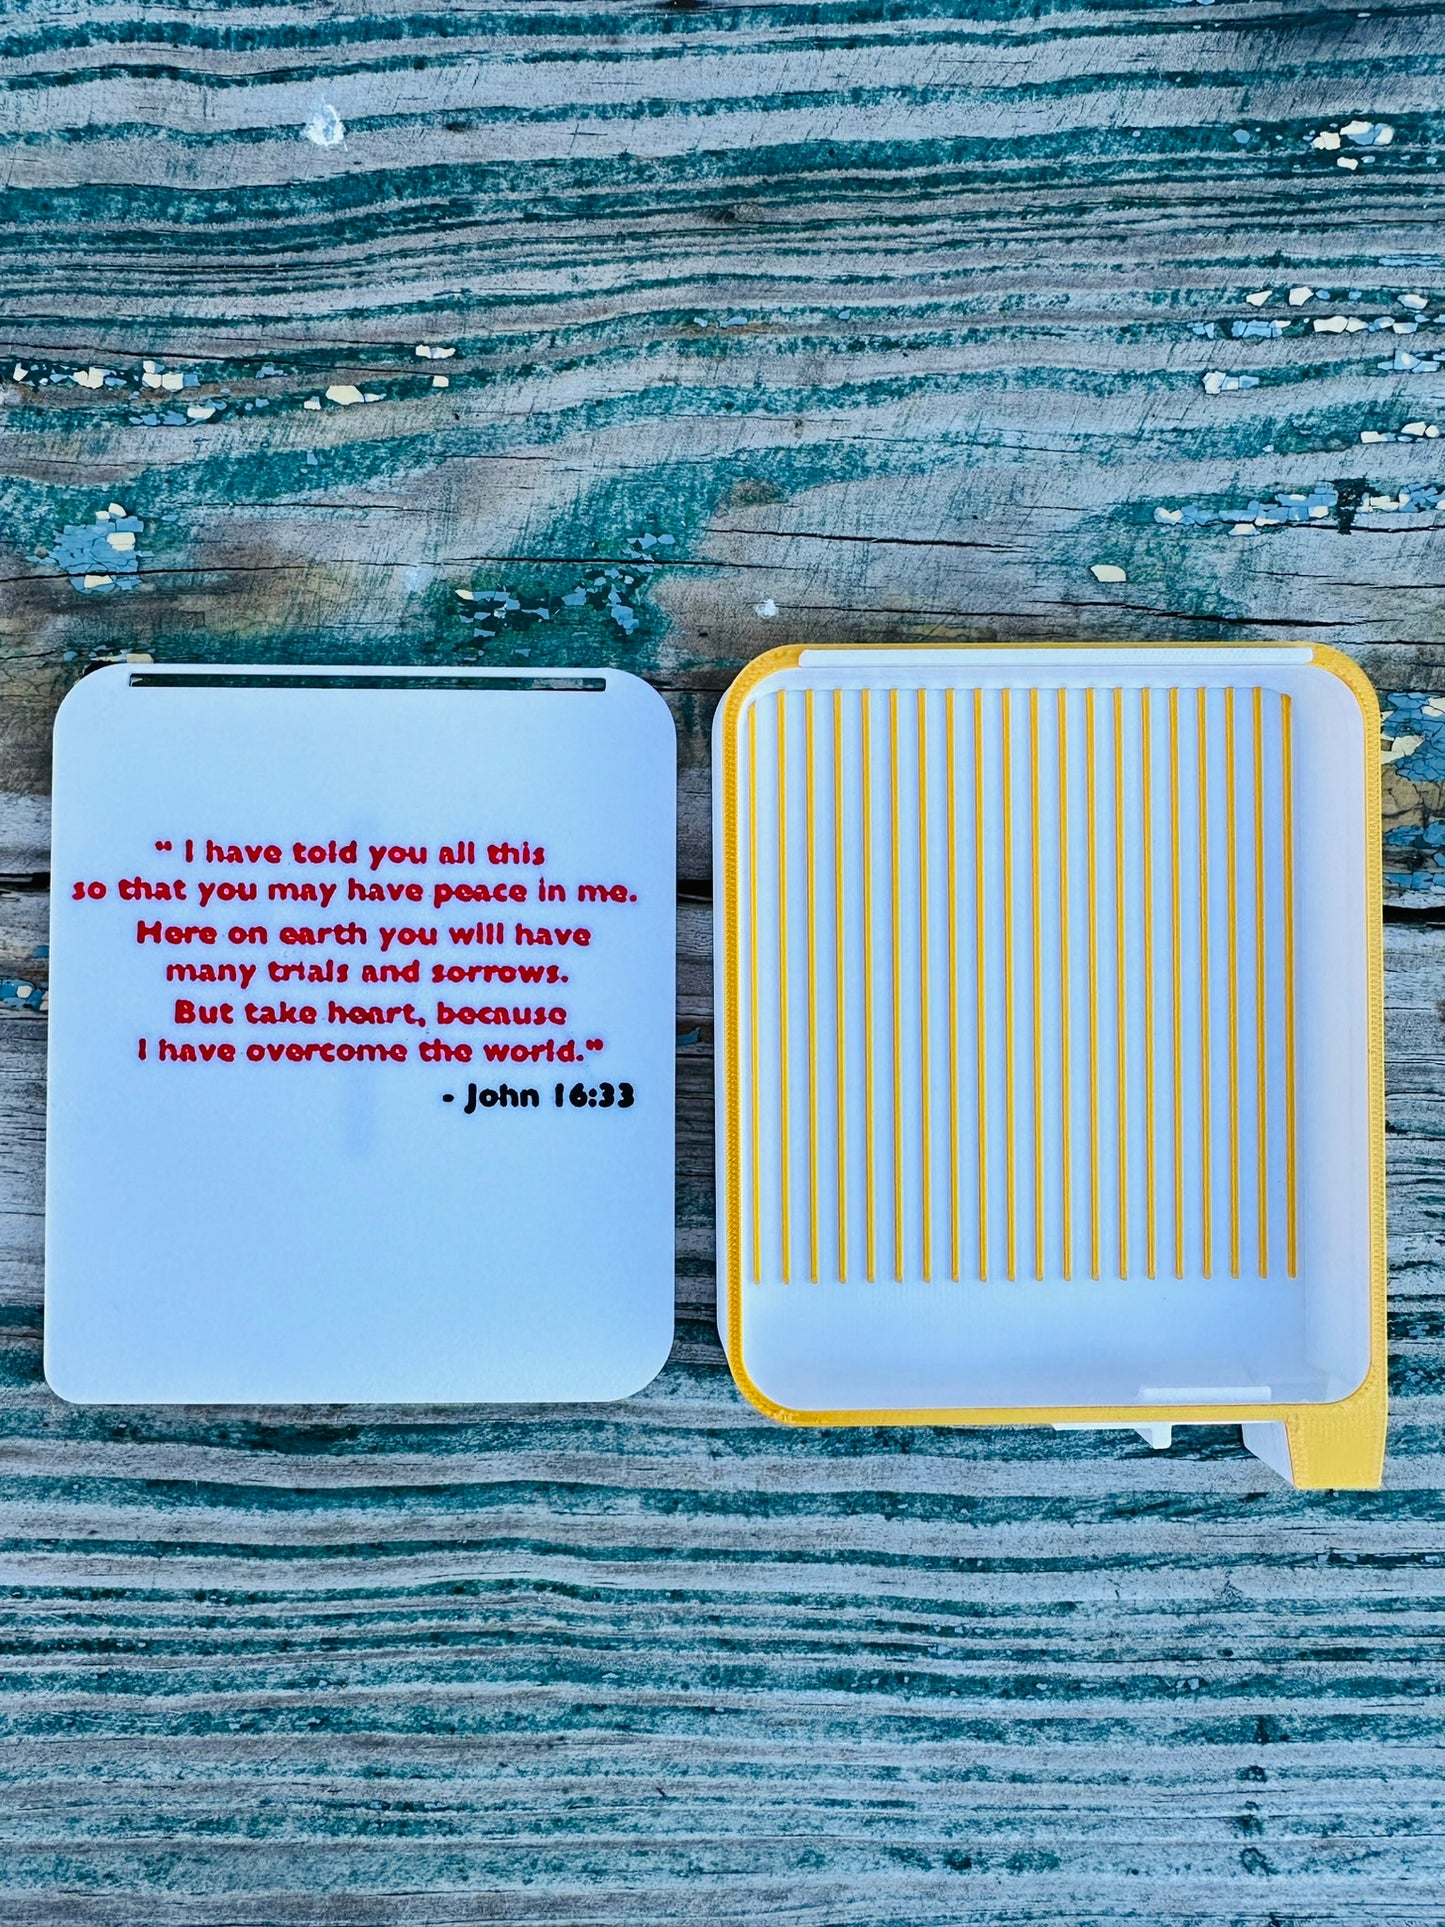 “ I have told you all this
so that you may have peace in me.
Here on earth you will have
many trials and sorrows.
But take heart, because
I have overcome the world.”
- John 16:33